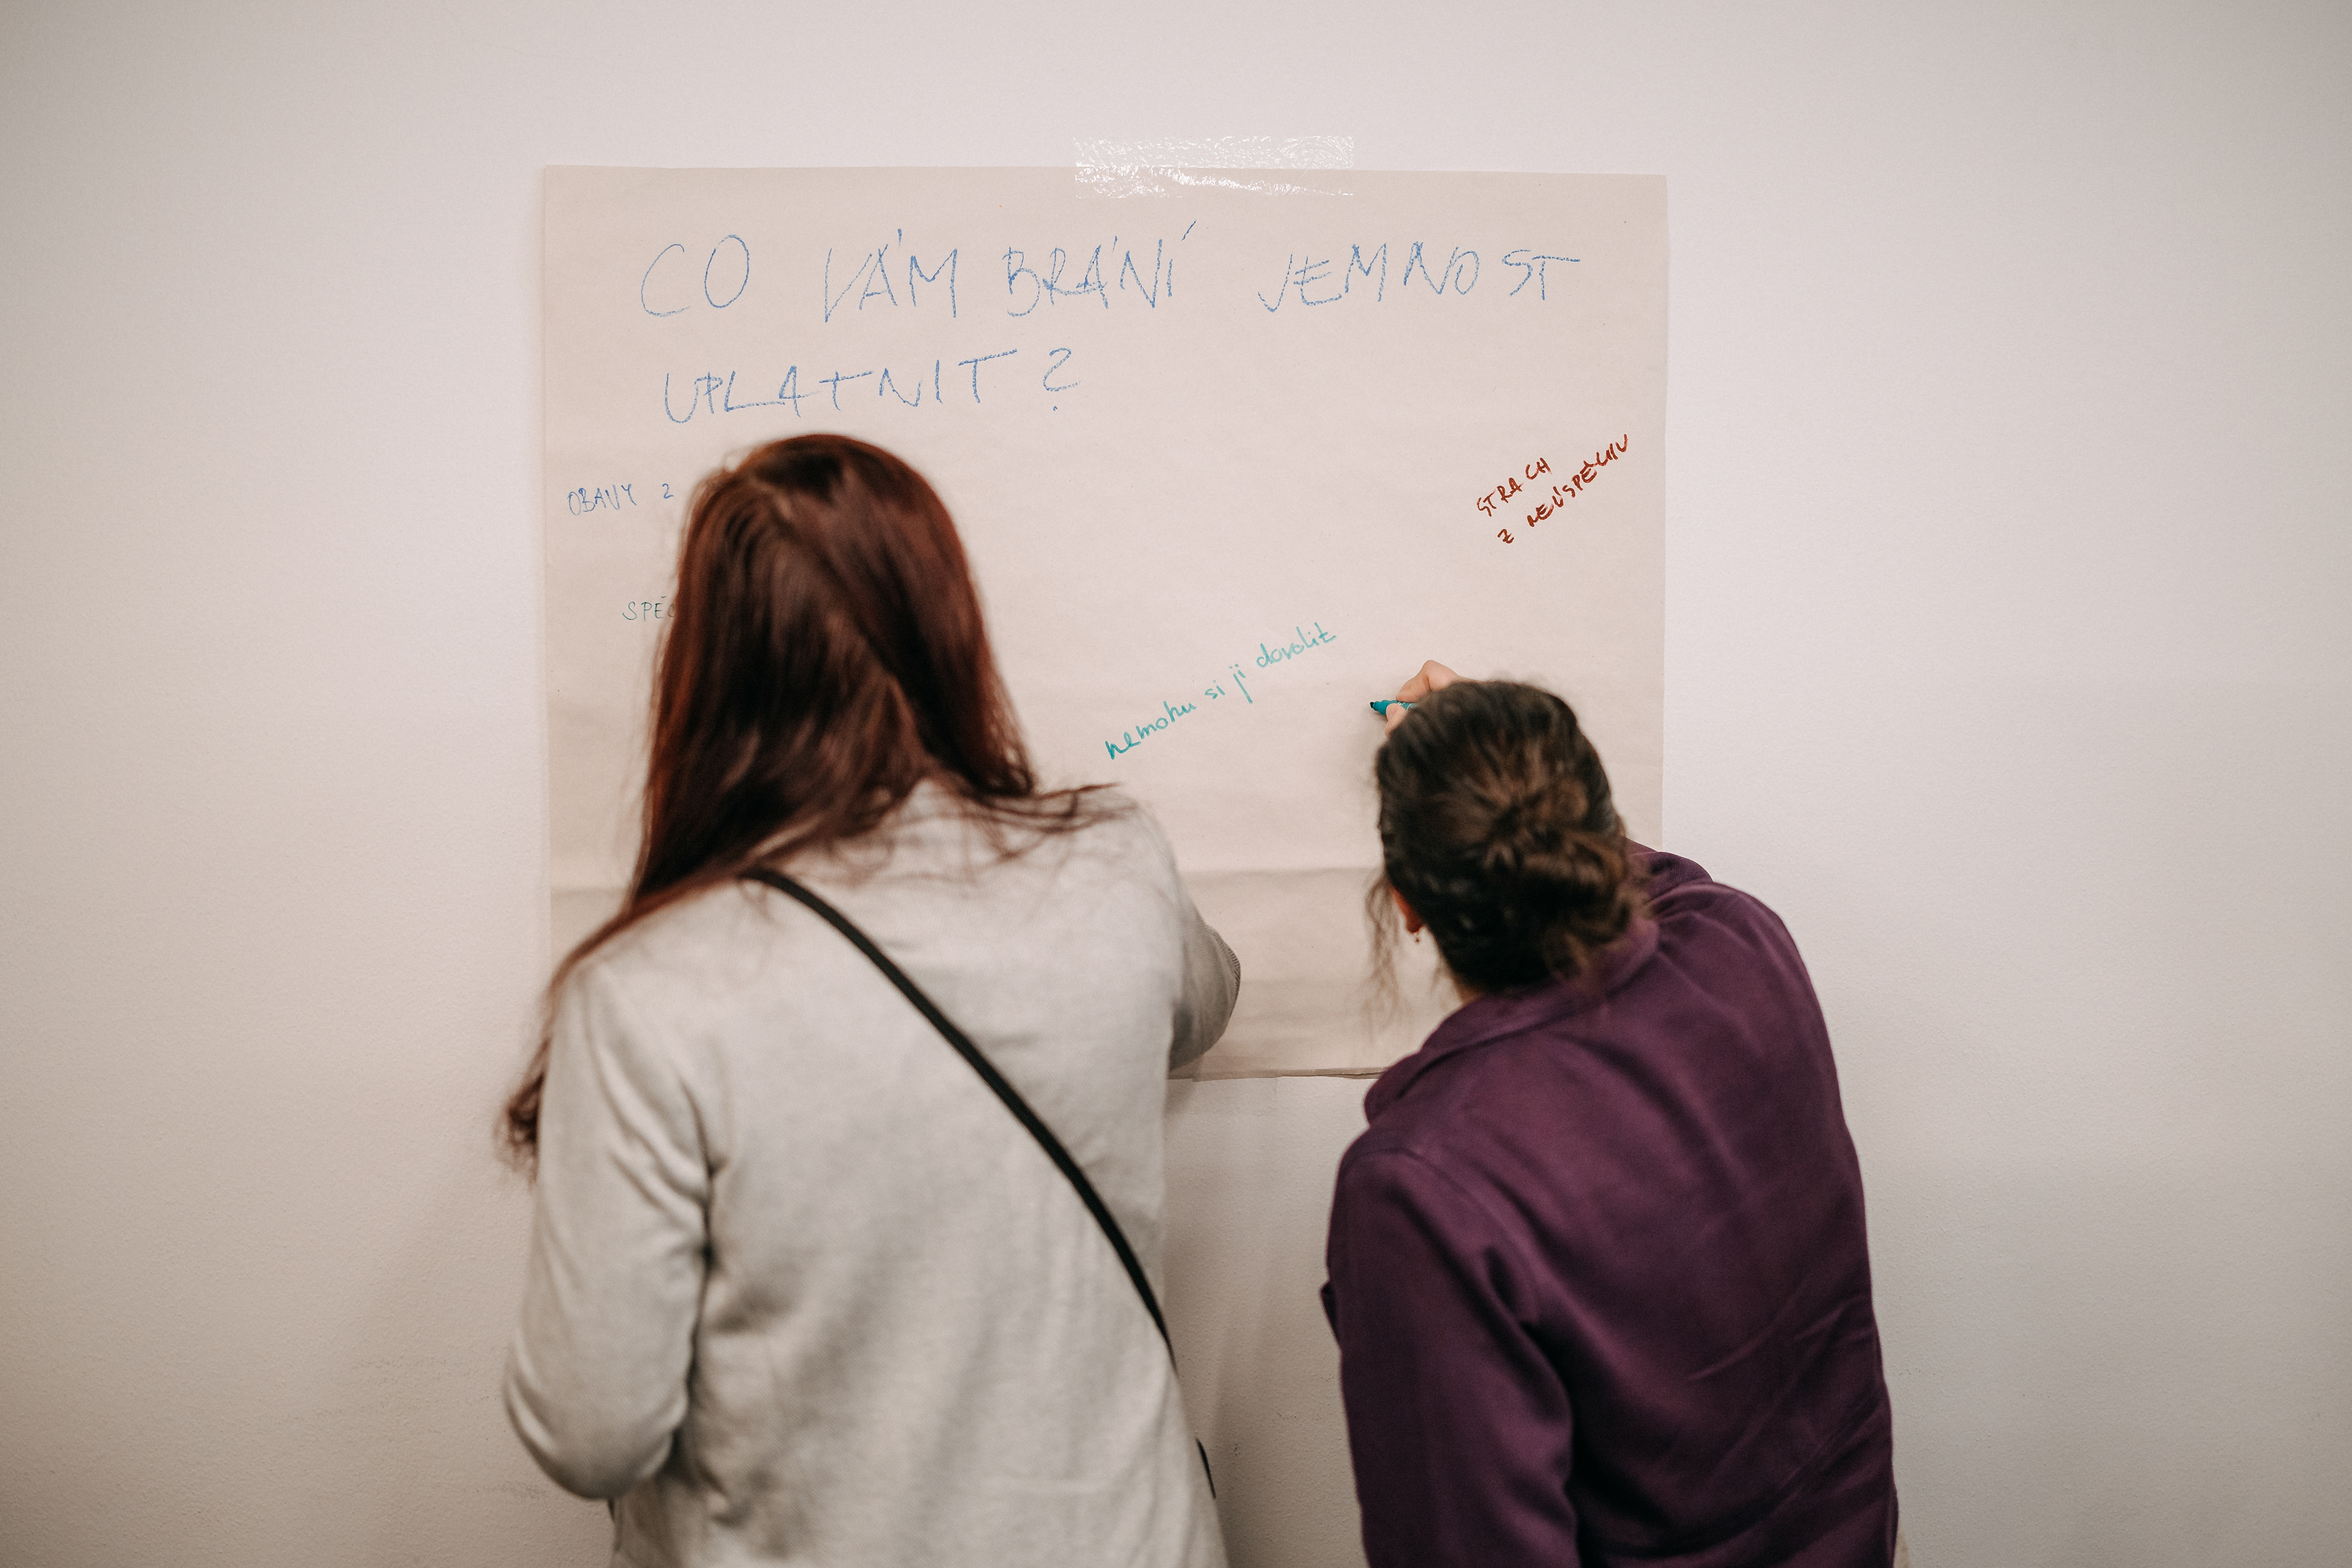 CO VÁM BRÁNÍ JEMNOST
UPLATNIT?
OBAVY Z
STRACH
Z NEÚSPĚCHU
nemohu si ji dovolit